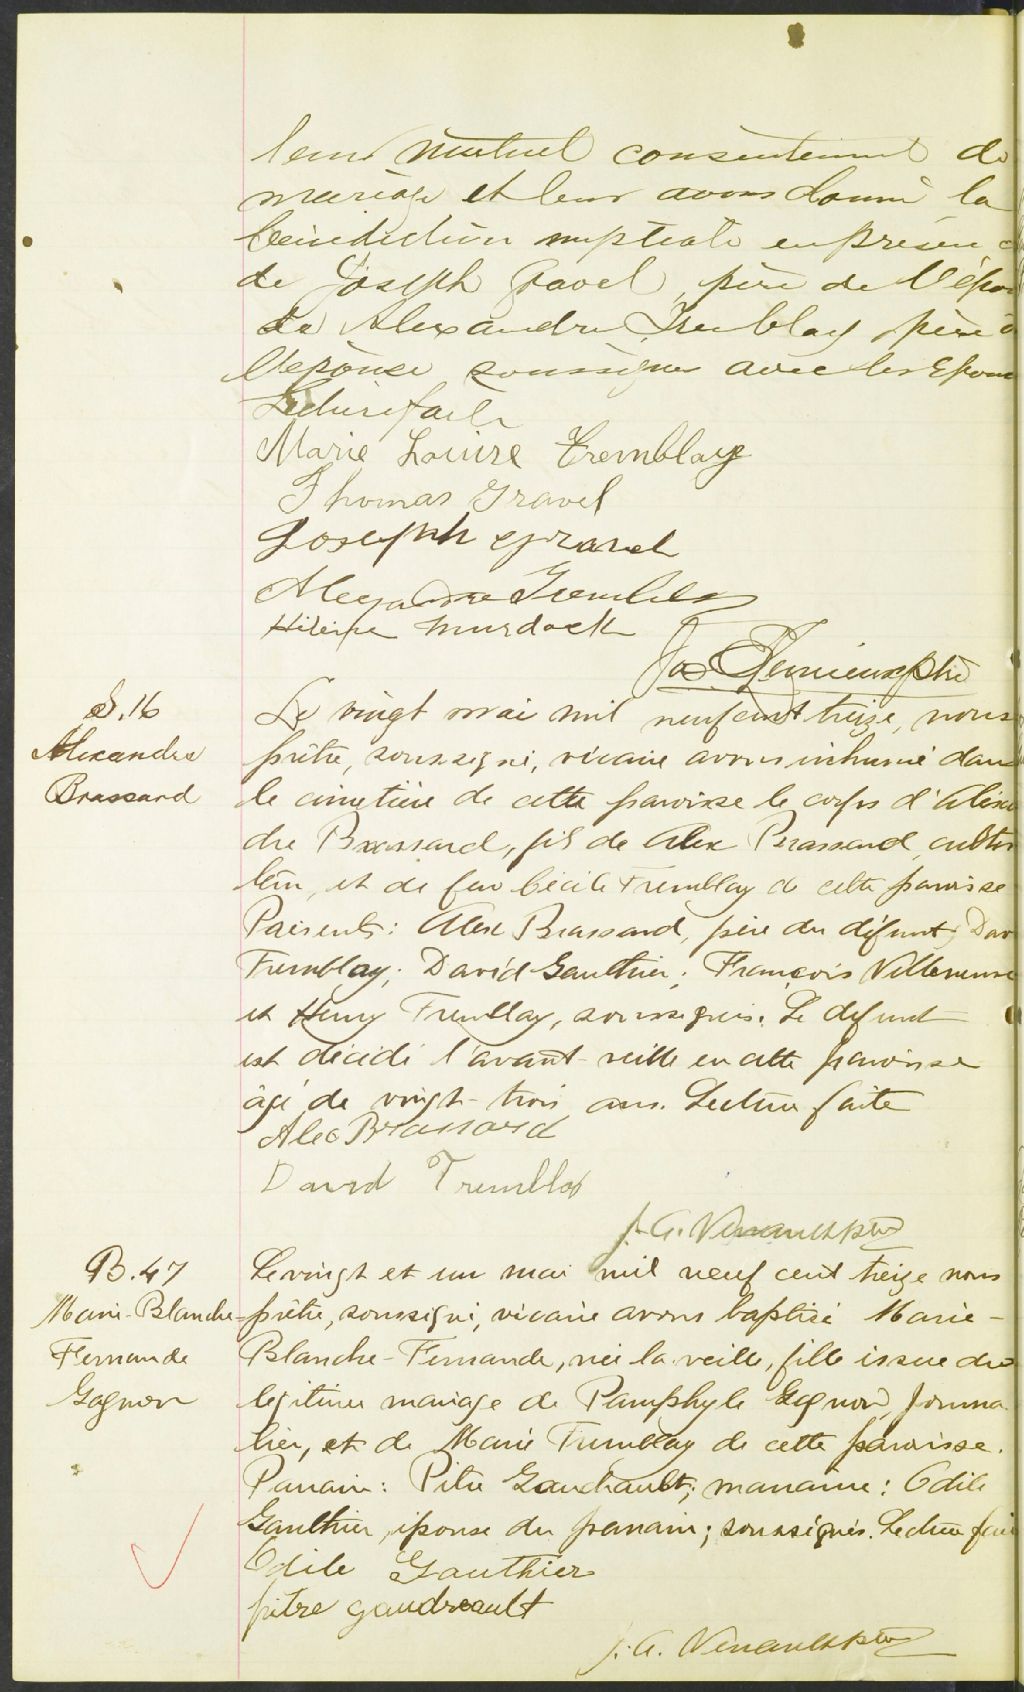 leur mutuel consentement de
mariage et leur avons donné la
bénédiction nuptiale en présence
de Joseph Gravel, père de l'épou
de Alexandre Tremblay père d
l'épouse soussignés avec les Epoux
Lecture faite
Marie Louise Tremblay
Thomas Gravel
Joseph Gravel
Alexandre Tremblay
Murdock
Jos. ptre
S. 16
Alexandre
Brassard
Le vingt mai mil neuf cent treize, nous
prêtre, soussigné, vicaire avons inhumé dans
le cimetière de cette paroisse le corps d'Alexan
dre Brassard, fils de Alex Brassard, culti
teur, et de feu Cécile Tremblay de cette paroisse
Présents: Alex Brassard, père du défunt; Dav
Tremblay; David Gauthier; François Villeneuve
et Henry Tremblay, soussignés. Le défunt
est décédé l'avant-veille en cette paroisse
âgé de vingt-trois ans. Lecture faite
Alex Brassard
David Tremblay
J. A. Verreault ptre
B. 47
Marie-Blanche-
Fernande
Gagnon
Le vingt et un mai mil neuf cent treize nous
prêtre, soussigné, vicaire avons baptisé Marie-
Blanche-Fernande, née la veille, fille issue du
légitime mariage de Pamphyle Gagnon, journa
lier, et de Marie Tremblay de cette paroisse.
Parrain: Pitre Gaudreault; marraine: Odile
Gauthier, épouse du parrain; soussignés. Lecture fai
Odile Gauthier
pitre gaudreault
J. A. Verreault ptre